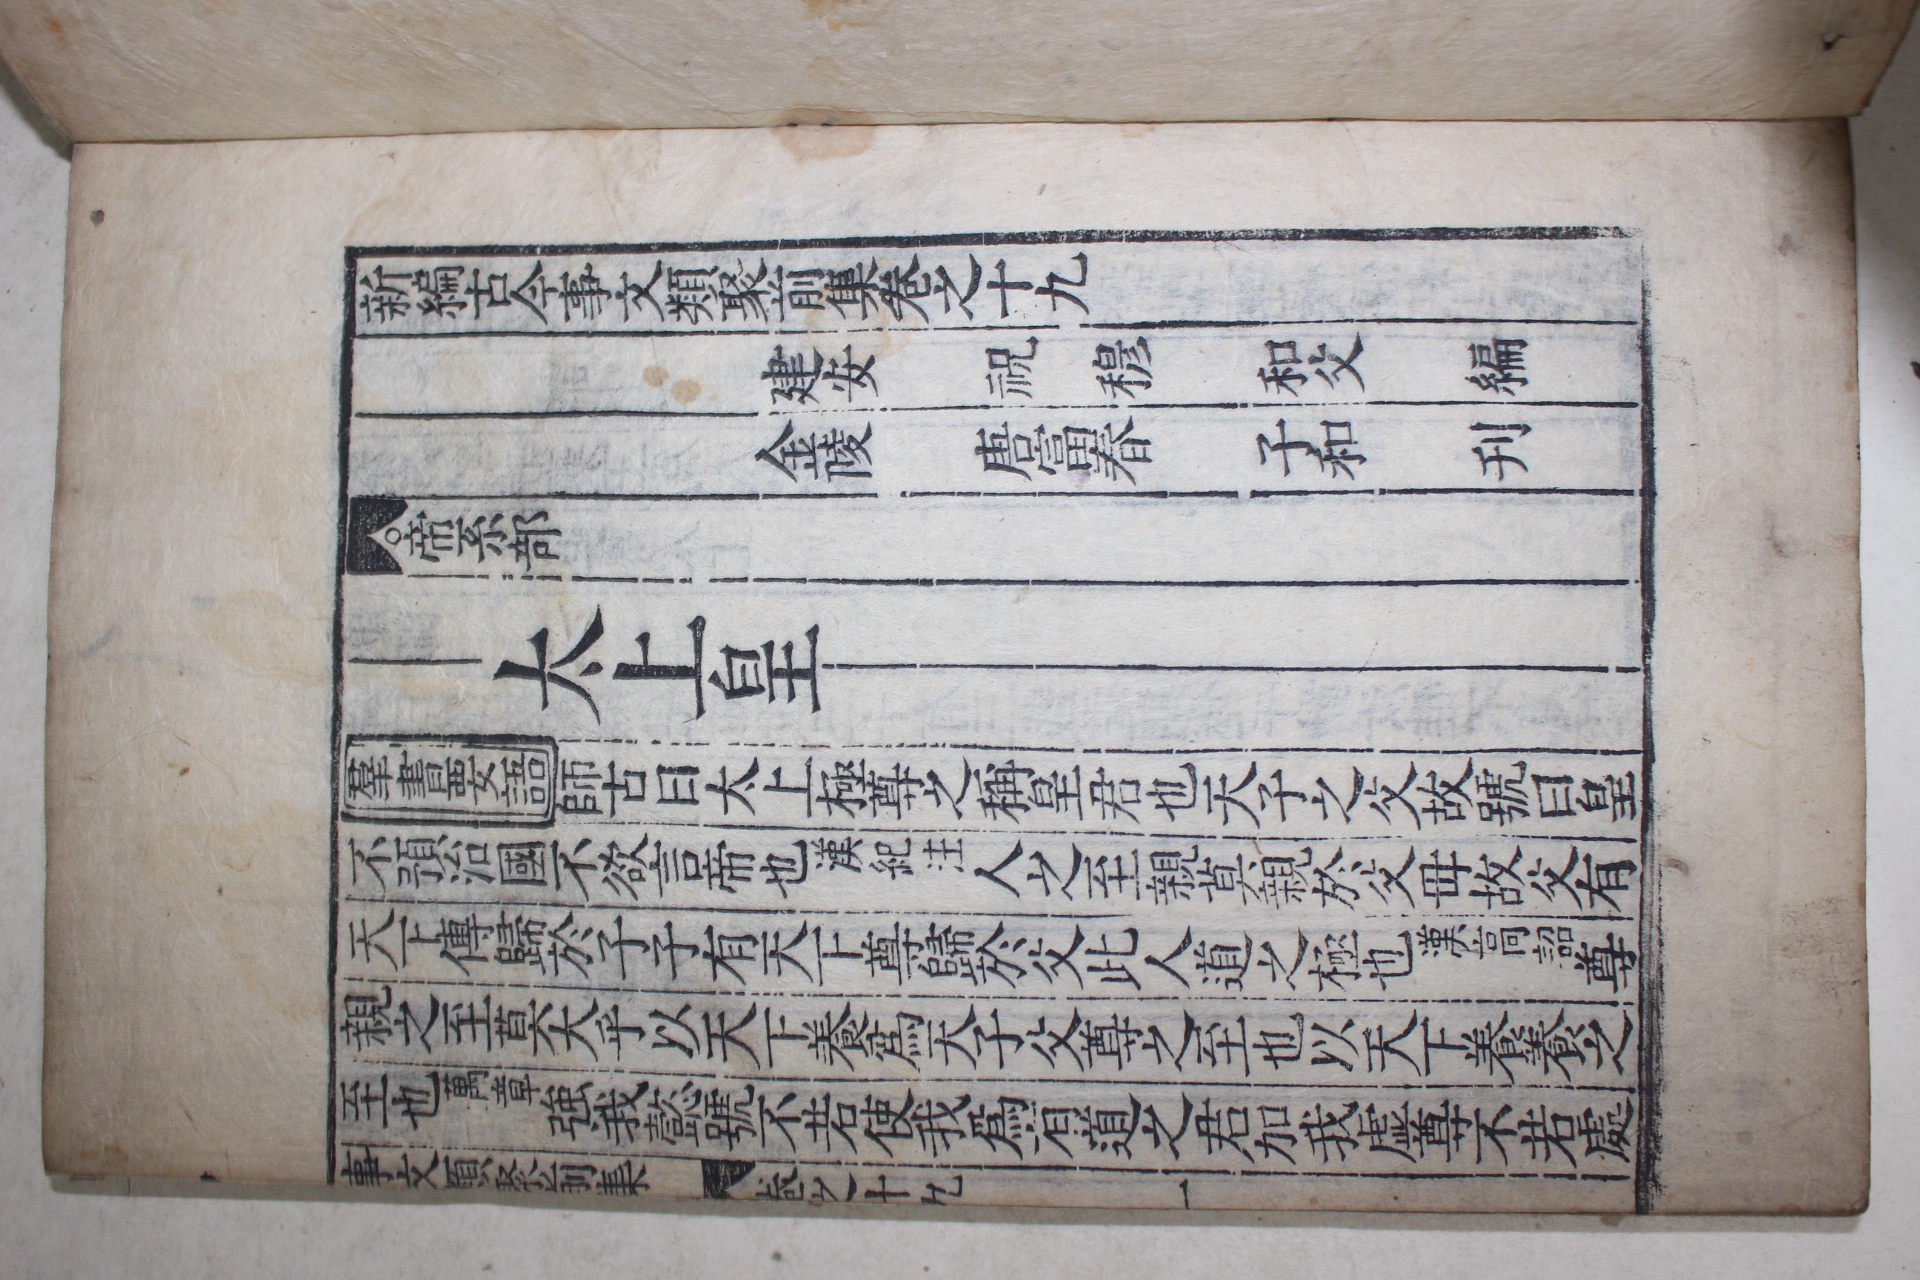 新編古今事文類聚前集卷之十九
建安 祝穆 和父 編
金陵 唐富春 子和 刊
○帝系部
太上皇
羣書要語 師古曰太上極尊之稱皇君也天子之父故號曰皇
不預治國不欲言帝也漢紀注人之至親莫親於父母故父有
天下傳歸於子子有天下尊歸於父此人道之極也漢高詔尊
親之至莫大乎以天下養爲天子父尊之至也以天下養養之
至也萬章強我懿號不若使我爲有道之君加我虛尊不若處
事文類聚前集 卷之十九 一